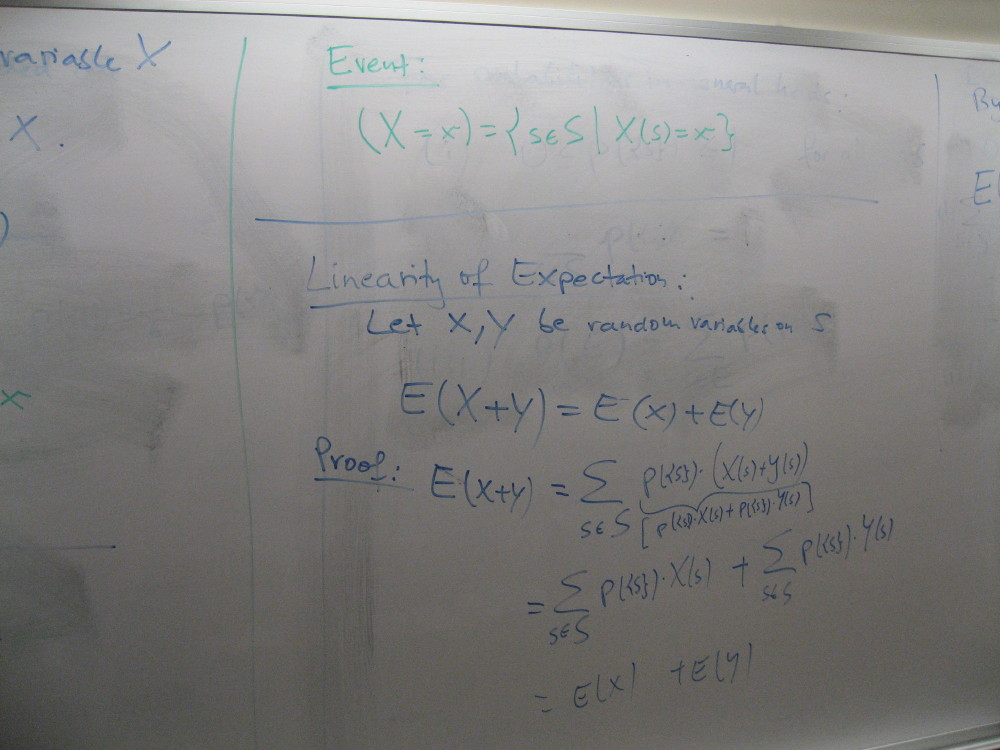 variable X
X.
)
x
Event:
(X = x) = { s∈S | X(s) = x }
Linearity of Expectation:
Let X, Y be random variables on S
E(X+Y) = E(X) + E(Y)
Proof: E(X+Y) = ∑ p({s})·(X(s)+Y(s))
s∈S [p({s})·X(s) + p({s})·Y(s)]
= ∑ p({s})·X(s) + ∑ p({s})·Y(s)
s∈S s∈S
= E(X) + E(Y)
By
E(